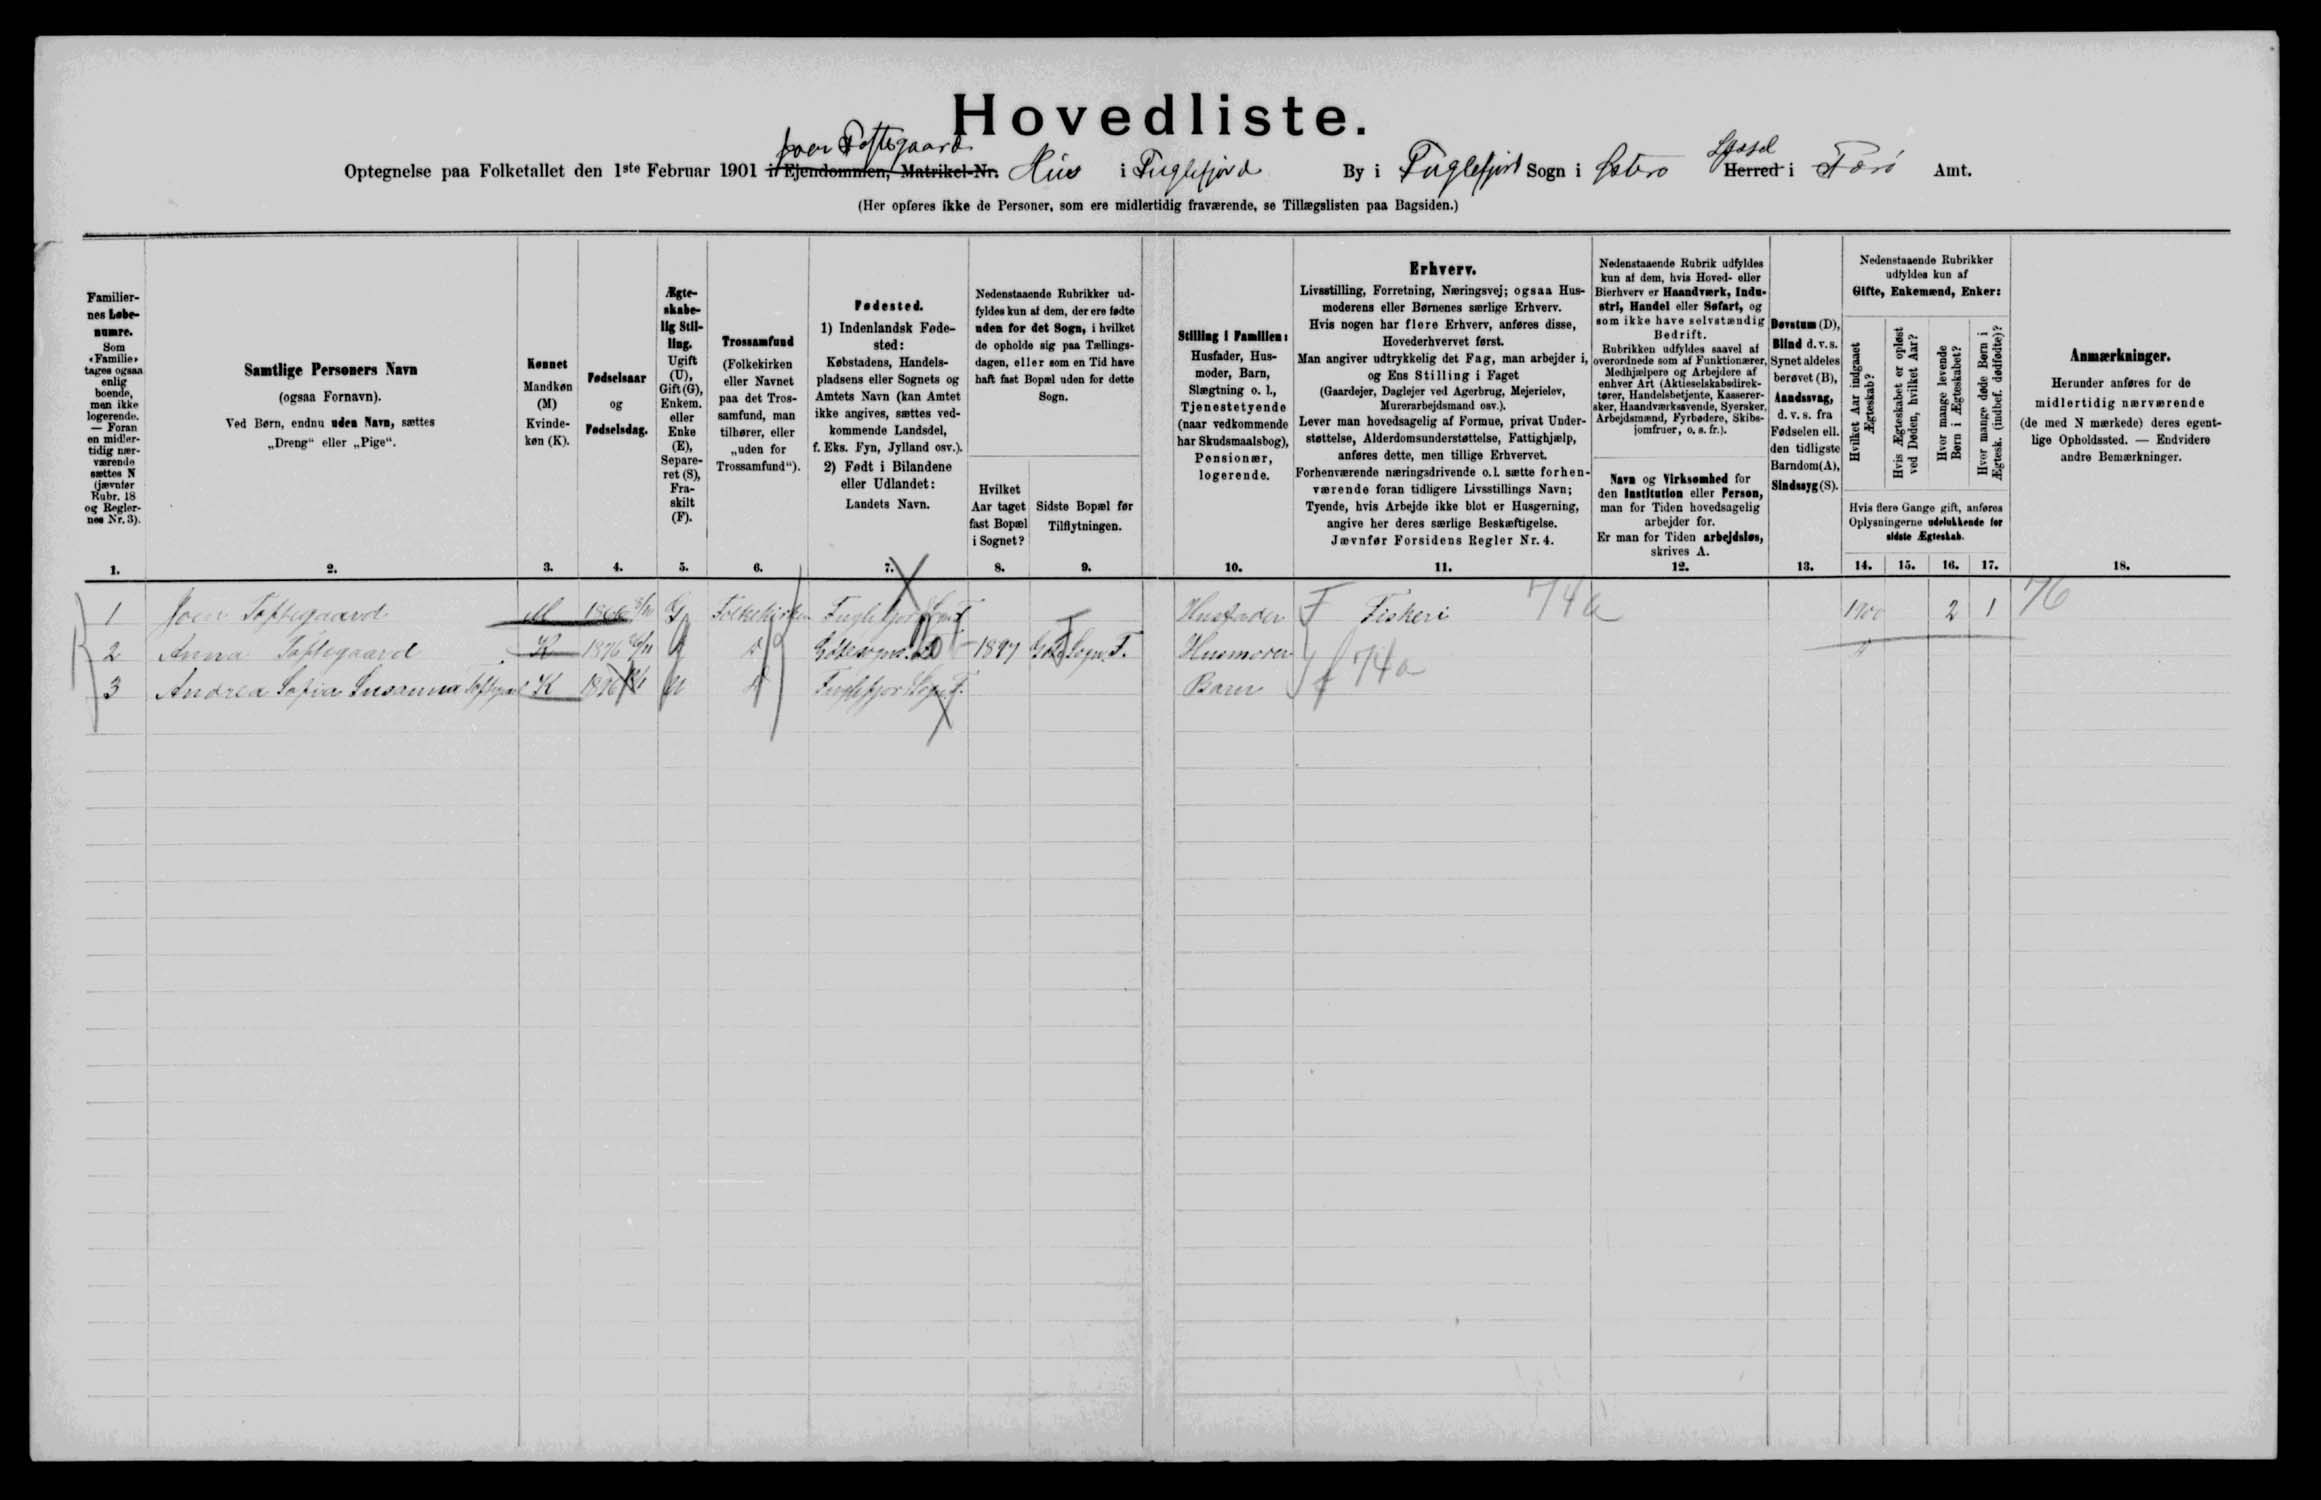 Hovedliste.
Joen Toftegaard
Optegnelse paa Folketallet den 1ste Februar 1901 i Ejendommen, Matrikel-Nr. Hus i Fuglefjord By i Fuglefjord Sogn i Østerø Syssel Herred i Færø Amt.
(Her opføres ikke de Personer, som ere midlertidig fraværende, se Tillægslisten paa Bagsiden.)
Familier-
nes Løbe-
numre.
Som
«Familie»
tages ogsaa
enlig
boende,
men ikke
logerende.
— Foran
en midler-
tidig nær-
værende
sættes N
(jævnfør
Rubr. 18
og Regler-
nes Nr. 3).
1.
Samtlige Personers Navn
(ogsaa Fornavn).
Ved Børn, endnu uden Navn, sættes
„Dreng“ eller „Pige“.
2.
Kønnet
Mandkøn
(M)
Kvinde-
køn (K).
3.
Fødselsaar
og
Fødselsdag.
4.
Ægte-
skabe-
lig Stil-
ling.
Ugift
(U),
Gift (G),
Enkem.
eller
Enke
(E),
Separe-
ret (S),
Fra-
skilt
(F).
5.
Trossamfund
(Folkekirken
eller Navnet
paa det Tros-
samfund, man
tilhører, eller
„uden for
Trossamfund“).
6.
Fødested.
1) IndenlandskFøde-
sted:
Købstadens, Handels-
pladsens eller Sognets og
Amtets Navn (kan Amtet
ikke angives, sættes ved-
kommende Landsdel,
f. Eks. Fyn, Jylland osv.).
2) Født i Bilandene
eller Udlandet:
Landets Navn.
7.
Nedenstaaende Rubrikker ud-
fyldes kun af dem, der ere fødte
uden for det Sogn, i hvilket
de opholde sig paa Tællings-
dagen, eller som en Tid have
haft fast Bopæl uden for dette
Sogn.
Hvilket
Aar taget
fast Bopæl
i Sognet?
8.
Sidste Bopæl før
Tilflytningen.
9.
Stilling i Familien:
Husfader, Hus-
moder, Barn,
Slægtning o. l.,
Tjenestetyende
(naar vedkommende
har Skudsmaalsbog),
Pensionær,
logerende.
10.
Erhverv.
Livsstilling, Forretning, Næringsvej; ogsaa Hus-
moderens eller Børnenes særlige Erhverv.
Hvis nogen har flere Erhverv, anføres disse,
Hovederhvervet først.
Man angiver udtrykkelig det Fag, man arbejder i,
og Ens Stilling i Faget
(Gaardejer, Daglejer ved Agerbrug, Mejerielev,
Murerarbejdsmand osv.).
Lever man hovedsagelig af Formue, privat Under-
støttelse, Alderdomsunderstøttelse, Fattighjælp,
anføres dette, men tillige Erhvervet.
Forhenværende næringsdrivende o. l. sætte forhen-
værende foran tidligere Livsstillings Navn;
Tyende, hvis Arbejde ikke blot er Husgerning,
angive her deres særlige Beskæftigelse.
Jævnfør Forsidens Regler Nr. 4.
11.
Nedenstaaende Rubrik udfyldes
kun af dem, hvis Hoved- eller
Bierhverv er Haandværk, Indu-
stri, Handel eller Søfart, og
som ikke have selvstændig
Bedrift.
Rubrikken udfyldes saavel af
overordnede som af Funktionærer,
Medhjælpere og Arbejdere af
enhver Art (Aktieselskabsdirek-
tører, Handelsbetjente, Kasserer-
sker, Haandværkssvende, Syersker,
Arbejdsmænd, Fyrbødere, Skibs-
jomfruer, o. s. fr.).
Navn og Virksomhed for
den Institution eller Person,
man for Tiden hovedsagelig
arbejder for.
Er man for Tiden arbejdsløs,
skrives A.
12.
Døvstum (D),
Blind d. v. s.
Synet aldeles
berøvet (B),
Aandssvag,
d. v. s. fra
Fødselen ell.
den tidligste
Barndom (A),
Sindssyg (S).
13.
Nedenstaaende Rubrikker
udfyldes kun af
Gifte, Enkemænd, Enker:
Hvilket Aar indgaaet
Ægteskab?
Hvis Ægteskabet er opløst
ved Døden, hvilket Aar?
Hvor mange levende
Børn i Ægteskabet?
Hvor mange døde Børn i
Ægtesk. (indbef. dødfødte)?
Hvis flere Gange gift, anføres
Oplysningerne udelukkende for
sidste Ægteskab.
14. 15. 16. 17.
Anmærkninger.
Herunder anføres for de
midlertidig nærværende
(de med N mærkede) deres egent-
lige Opholdssted. — Endvidere
andre Bemærkninger.
18.
1 Joen Toftegaard M G Folkekirken Husfader F Fiskeri 74a 1900 2 1 76
2 Anna Toftegaard K 1876 1897 Gøte Sogn. F. Husmoder
3 Andrea Sofia Susanna Toftegaard K U Fuglefjord Sogn. F. Barn f 74a